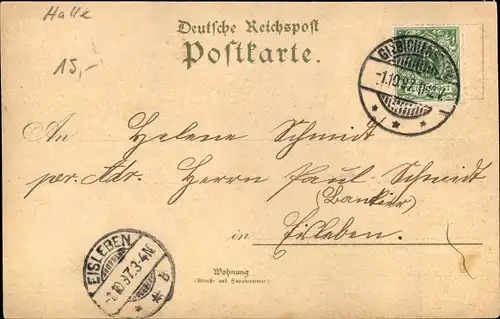 Halle
15,-
Deutsche Reichspost
Postkarte.
GIEBICHENSTEIN
-1.10.97.
An Helene Schmidt
per. Adr. Herrn Paul Schmidt
(Bankier)
in Eisleben.
EISLEBEN
-1.10.97.3-4N
* * b
Wohnung
(Straße und Hausnummer)